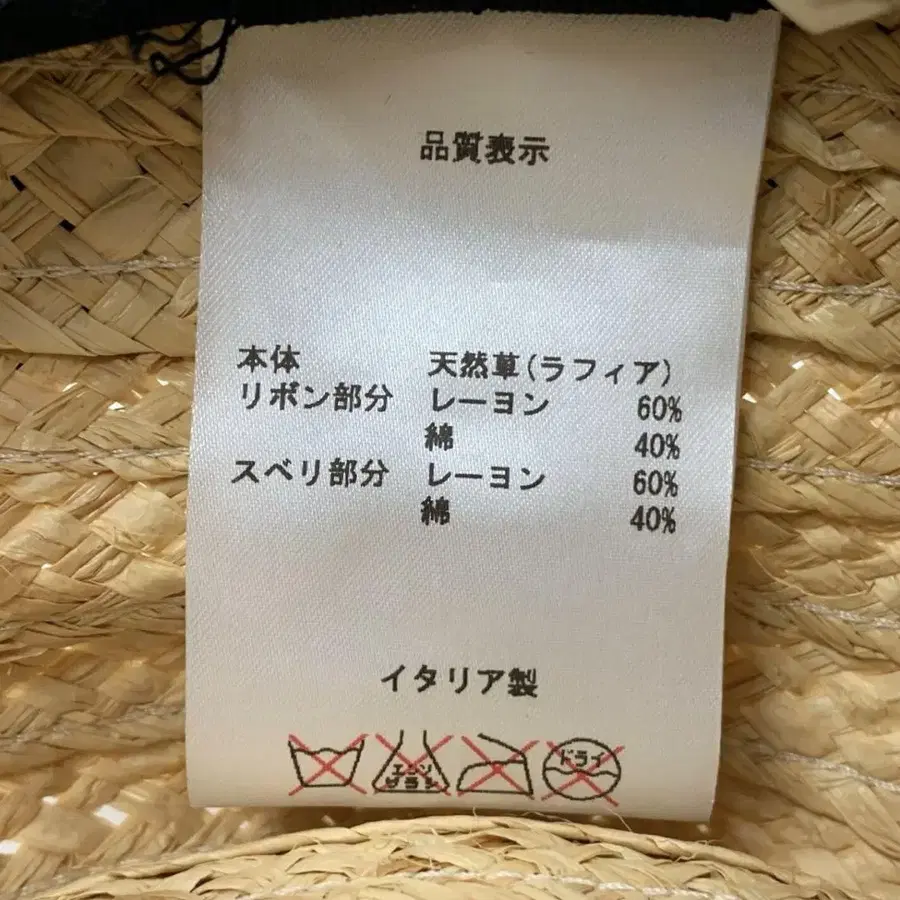 品質表示
本体 天然草(ラフィア)
リボン部分 レーヨン 60%
綿 40%
スベリ部分 レーヨン 60%
綿 40%
イタリア製
エンソ
サラシ
ドライ